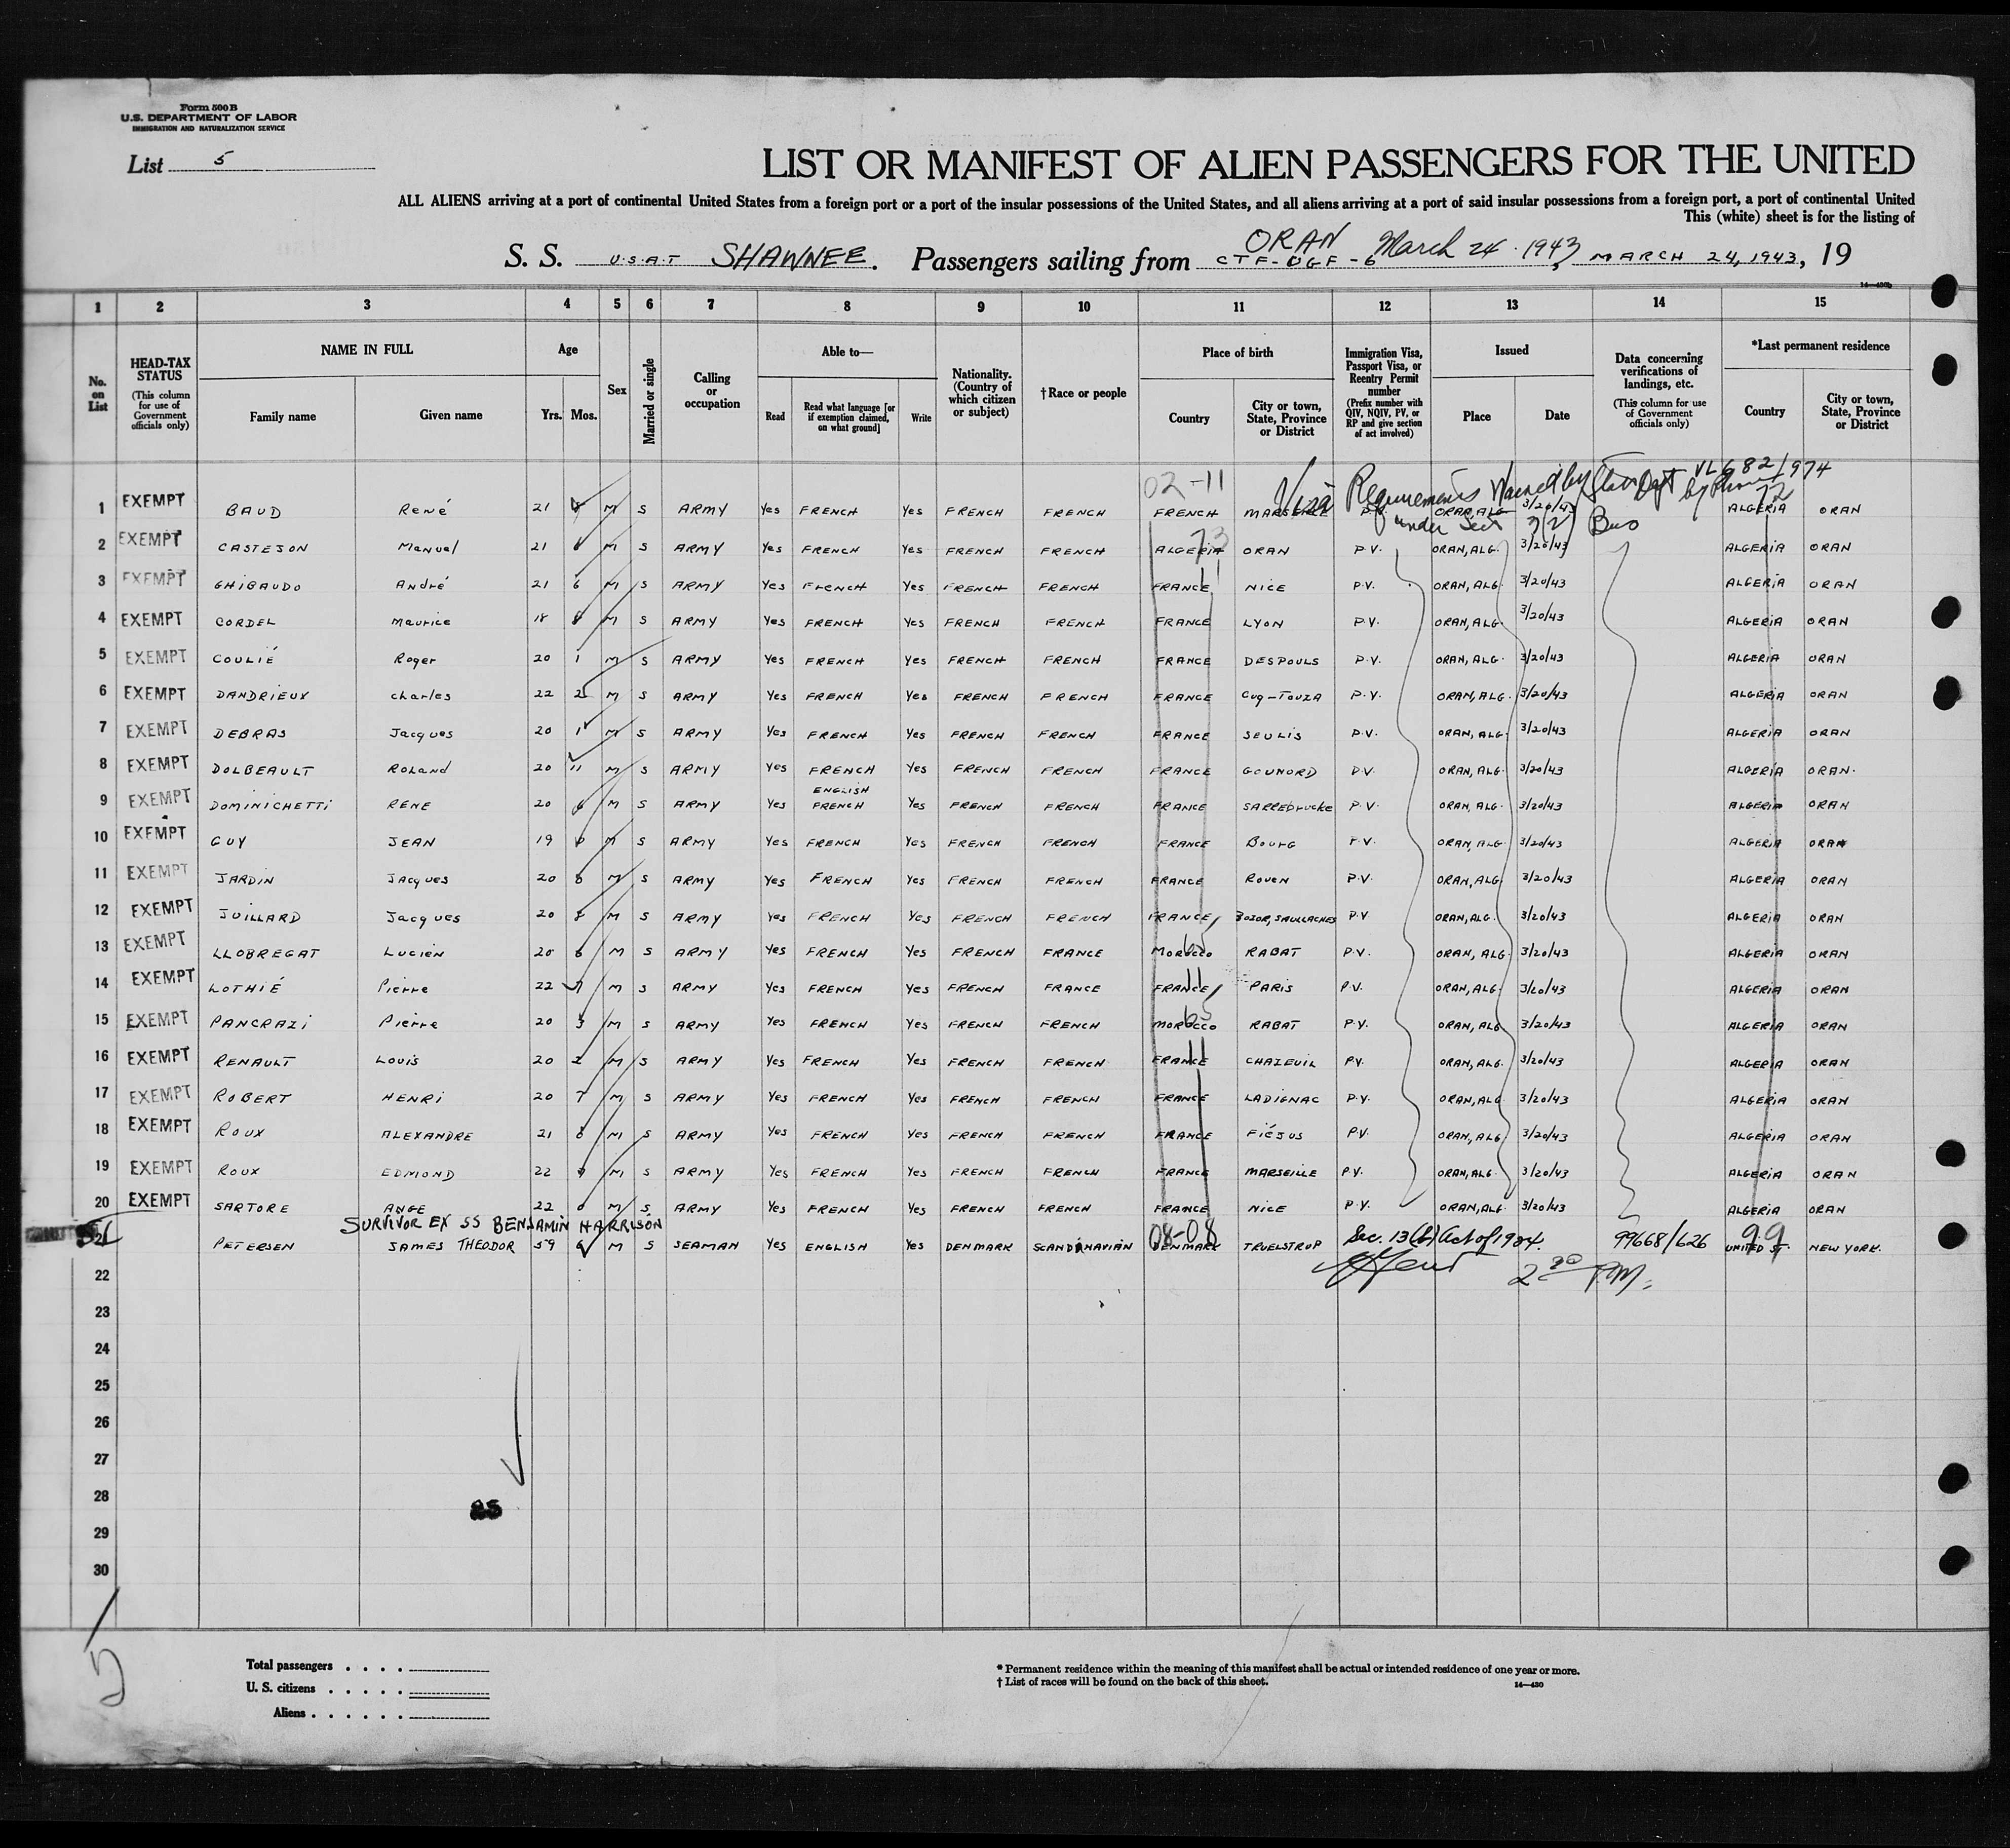 Form 500 B
U.S. DEPARTMENT OF LABOR
IMMIGRATION AND NATURALIZATION SERVICE
List 5
LIST OR MANIFEST OF ALIEN PASSENGERS FOR THE UNITED
ALL ALIENS arriving at a port of continental United States from a foreign port or a port of the insular possessions of the United States, and all aliens arriving at a port of said insular possessions from a foreign port, a port of continental United
This (white) sheet is for the listing of
S. S. U.S.A.T SHAWNEE. Passengers sailing from ORAN CTF-UGF-6 March 24. 1943, MARCH 24, 1943, 19
1 2 3 4 5 6 7 8 9 10 11 12 13 14 15
No. on List
HEAD-TAX STATUS (This column for use of Government officials only)
NAME IN FULL Family name Given name
Age Yrs. Mos.
Sex
Married or single
Calling or occupation
Able to— Read Read what language [or if exemption claimed, on what ground] Write
Nationality. (Country of which citizen or subject)
†Race or people
Place of birth Country City or town, State, Province or District
Immigration Visa, Passport Visa, or Reentry Permit number (Prefix number with QIV, NQIV, PV, or RP and give section of act involved)
Issued Place Date
Data concerning verifications of landings, etc. (This column for use of Government officials only)
*Last permanent residence Country City or town, State, Province or District
02-11 Visa Requirements Waived by State Dept by Phone VL 682/974
under Sec 72
1 EXEMPT BAUD René 21 M S ARMY Yes FRENCH Yes FRENCH FRENCH FRENCH MARSEILLE P.V. ORAN, ALG 3/20/43 ALGERIA ORAN
2 EXEMPT CASTEJON Manuel 21 M S ARMY Yes FRENCH Yes FRENCH FRENCH ALGERIA ORAN P.V. ORAN, ALG. 3/20/43 ALGERIA ORAN
3 EXEMPT GHIBAUDO André 21 6 M S ARMY Yes FRENCH Yes FRENCH FRENCH FRANCE NICE P.V. ORAN, ALG 3/20/43 ALGERIA ORAN
4 EXEMPT CORDEL Maurice 18 M S ARMY Yes FRENCH Yes FRENCH FRENCH FRANCE LYON P.V. ORAN, ALG. 3/20/43 ALGERIA ORAN
5 EXEMPT COULIÉ Roger 20 1 M S ARMY Yes FRENCH Yes FRENCH FRENCH FRANCE DESPOULS P.V. ORAN, ALG. 3/20/43 ALGERIA ORAN
6 EXEMPT DANDRIEUX Charles 22 2 M S ARMY Yes FRENCH Yes FRENCH FRENCH FRANCE CUQ-TOUZA P.V. ORAN, ALG. 3/20/43 ALGERIA ORAN
7 EXEMPT DEBRAS Jacques 20 1 M S ARMY Yes FRENCH Yes FRENCH FRENCH FRANCE SEULIS P.V. ORAN, ALG. 3/20/43 ALGERIA ORAN
8 EXEMPT DOLBEAULT Roland 20 11 M S ARMY Yes FRENCH Yes FRENCH FRENCH FRANCE GOUNORD P.V. ORAN, ALG. 3/20/43 ALGERIA ORAN.
9 EXEMPT DOMINICHETTI RENE 20 6 M S ARMY Yes ENGLISH FRENCH Yes FRENCH FRENCH FRANCE SARREBRUCKE P.V. ORAN, ALG. 3/20/43 ALGERIA ORAN
10 EXEMPT GUY JEAN 19 M S ARMY Yes FRENCH Yes FRENCH FRENCH FRANCE BOURG P.V. ORAN, ALG 3/20/43 ALGERIA ORAN
11 EXEMPT JARDIN Jacques 20 8 M S ARMY Yes FRENCH Yes FRENCH FRENCH FRANCE ROUEN P.V. ORAN, ALG 3/20/43 ALGERIA ORAN
12 EXEMPT JUILLARD Jacques 20 M S ARMY Yes FRENCH Yes FRENCH FRENCH FRANCE P.V ORAN, ALG. 3/20/43 ALGERIA ORAN
13 EXEMPT LLOBREGAT Lucien 20 6 M S ARMY Yes FRENCH Yes FRENCH FRANCE MOROCCO RABAT P.V. ORAN, ALG. 3/20/43 ALGERIA ORAN
14 EXEMPT LOTHIÉ Pierre 22 M S ARMY Yes FRENCH Yes FRENCH FRANCE FRANCE PARIS P.V. ORAN, ALG 3/20/43 ALGERIA ORAN
15 EXEMPT PANCRAZI Pierre 20 3 M S ARMY Yes FRENCH Yes FRENCH FRENCH MOROCCO RABAT P.V. ORAN, ALG 3/20/43 ALGERIA ORAN
16 EXEMPT RENAULT Louis 20 2 M S ARMY Yes FRENCH Yes FRENCH FRENCH FRANCE CHAZEUIL P.V. ORAN, ALG. 3/20/43 ALGERIA ORAN
17 EXEMPT ROBERT HENRI 20 7 M S ARMY Yes FRENCH Yes FRENCH FRENCH FRANCE LADIGNAC P.V. ORAN, ALG 3/20/43 ALGERIA ORAN
18 EXEMPT ROUX ALEXANDRE 21 8 M S ARMY Yes FRENCH Yes FRENCH FRENCH FRANCE FIÉJUS P.V. ORAN, ALG 3/20/43 ALGERIA ORAN
19 EXEMPT ROUX EDMOND 22 M S ARMY Yes FRENCH Yes FRENCH FRENCH FRANCE MARSEILLE P.V. ORAN, ALG. 3/20/43 ALGERIA ORAN
20 EXEMPT SARTORE ANGE 22 M S ARMY Yes FRENCH Yes FRENCH FRENCH FRANCE NICE P.V. ORAN, ALG. 3/20/43 ALGERIA ORAN
SURVIVOR EX SS BENJAMIN HARRISON 08-08 99
21 PETERSEN JAMES THEODOR 59 6 M S SEAMAN Yes ENGLISH Yes DENMARK SCANDINAVIAN DENMARK TRUELSTRUP Sec. 13(b) Act of 1924. 99668/626 UNITED ST. NEW YORK.
22 2 00 P.M.
23
24
25
26
27
28
29
30
5
Total passengers
U. S. citizens
Aliens
* Permanent residence within the meaning of this manifest shall be actual or intended residence of one year or more.
† List of races will be found on the back of this sheet.
14—430